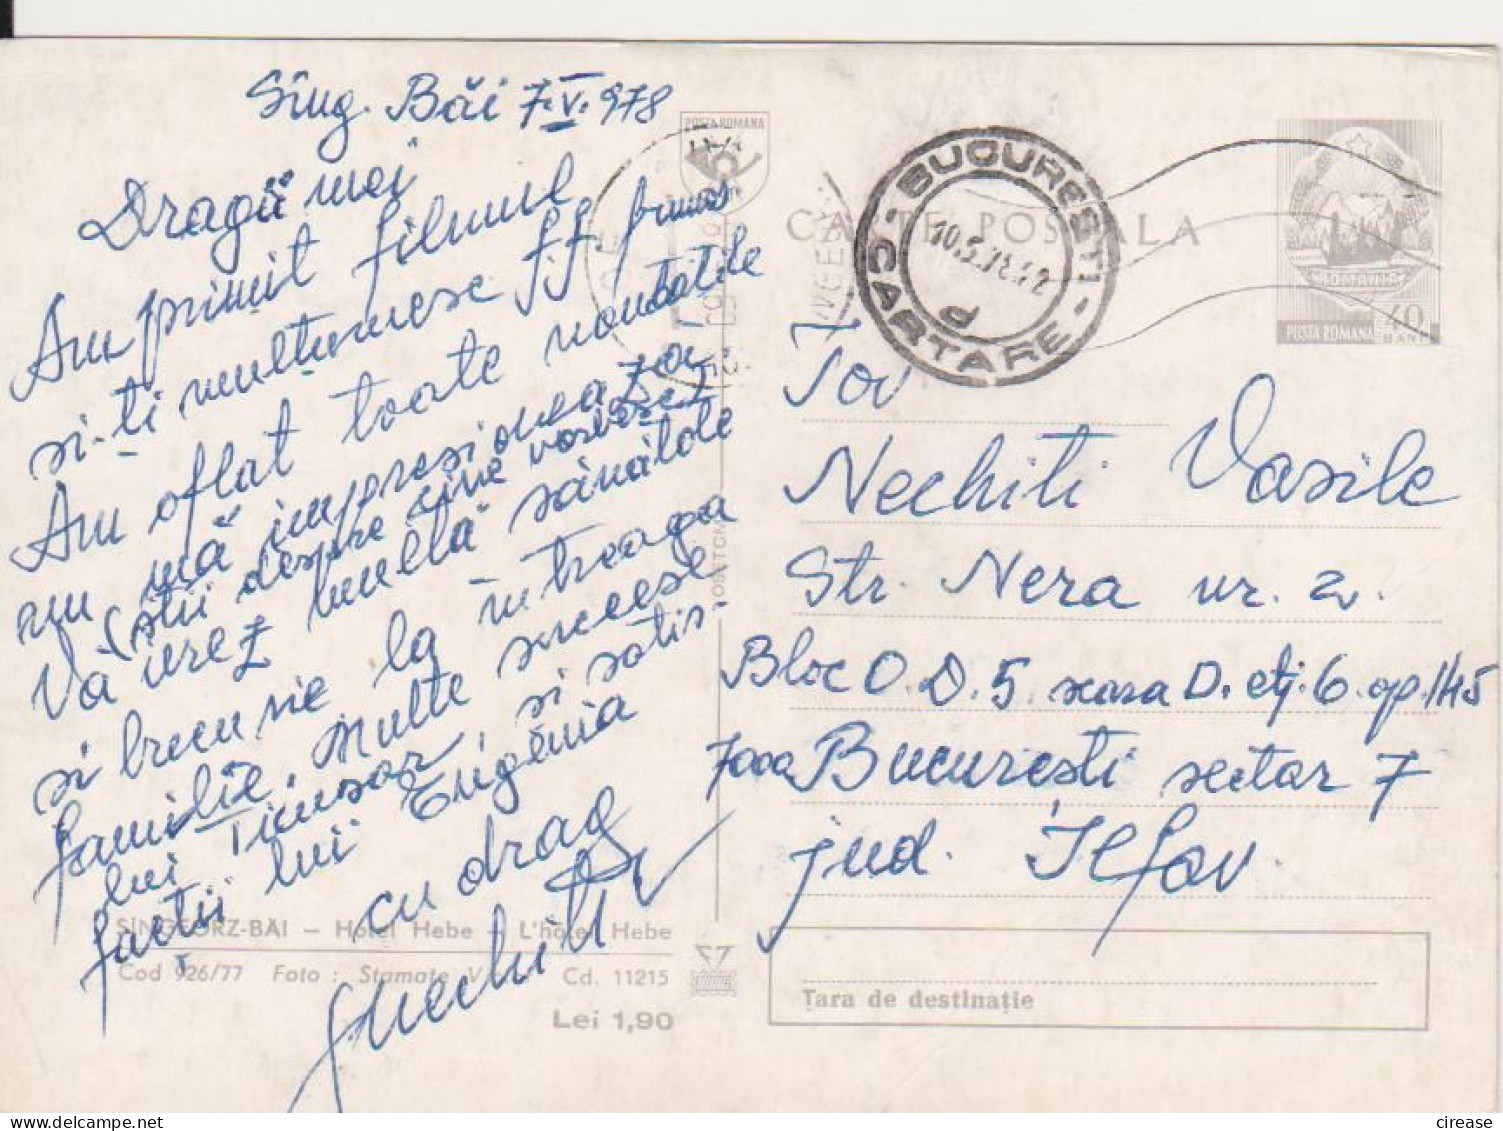 Sîng. Băi 7.V.978
Dragii mei
Am primit filmul
si-ti mulțumesc ff frumos
Am aflat toate noutatile
nu mă impresionează,
(stii despre cine vorbesc)
Vă urez multă sănătate
si bucurie la întreaga
familie. Multe succese
lui Tiensar, si satis-
facții lui Eugenia
cu drag
Nechiti
POSTA ROMANA
CARTE POSTALA
BUCUREȘTI
CARTARE
10.5.78.12
d
POSTA ROMANA
40
BANI
Tov
Nechiti Vasile
Str. Nera nr. 2.
Bloc O.D.5. scara D. etj. 6. ap. 145
7000 București sector 7
jud. Ilfov
SÎNGEORZ-BĂI — Hotel Hebe — L'hôtel Hebe
Cod 926/77 Foto : Stamate V. Cd. 11215
Lei 1,90
Țara de destinație
cirease